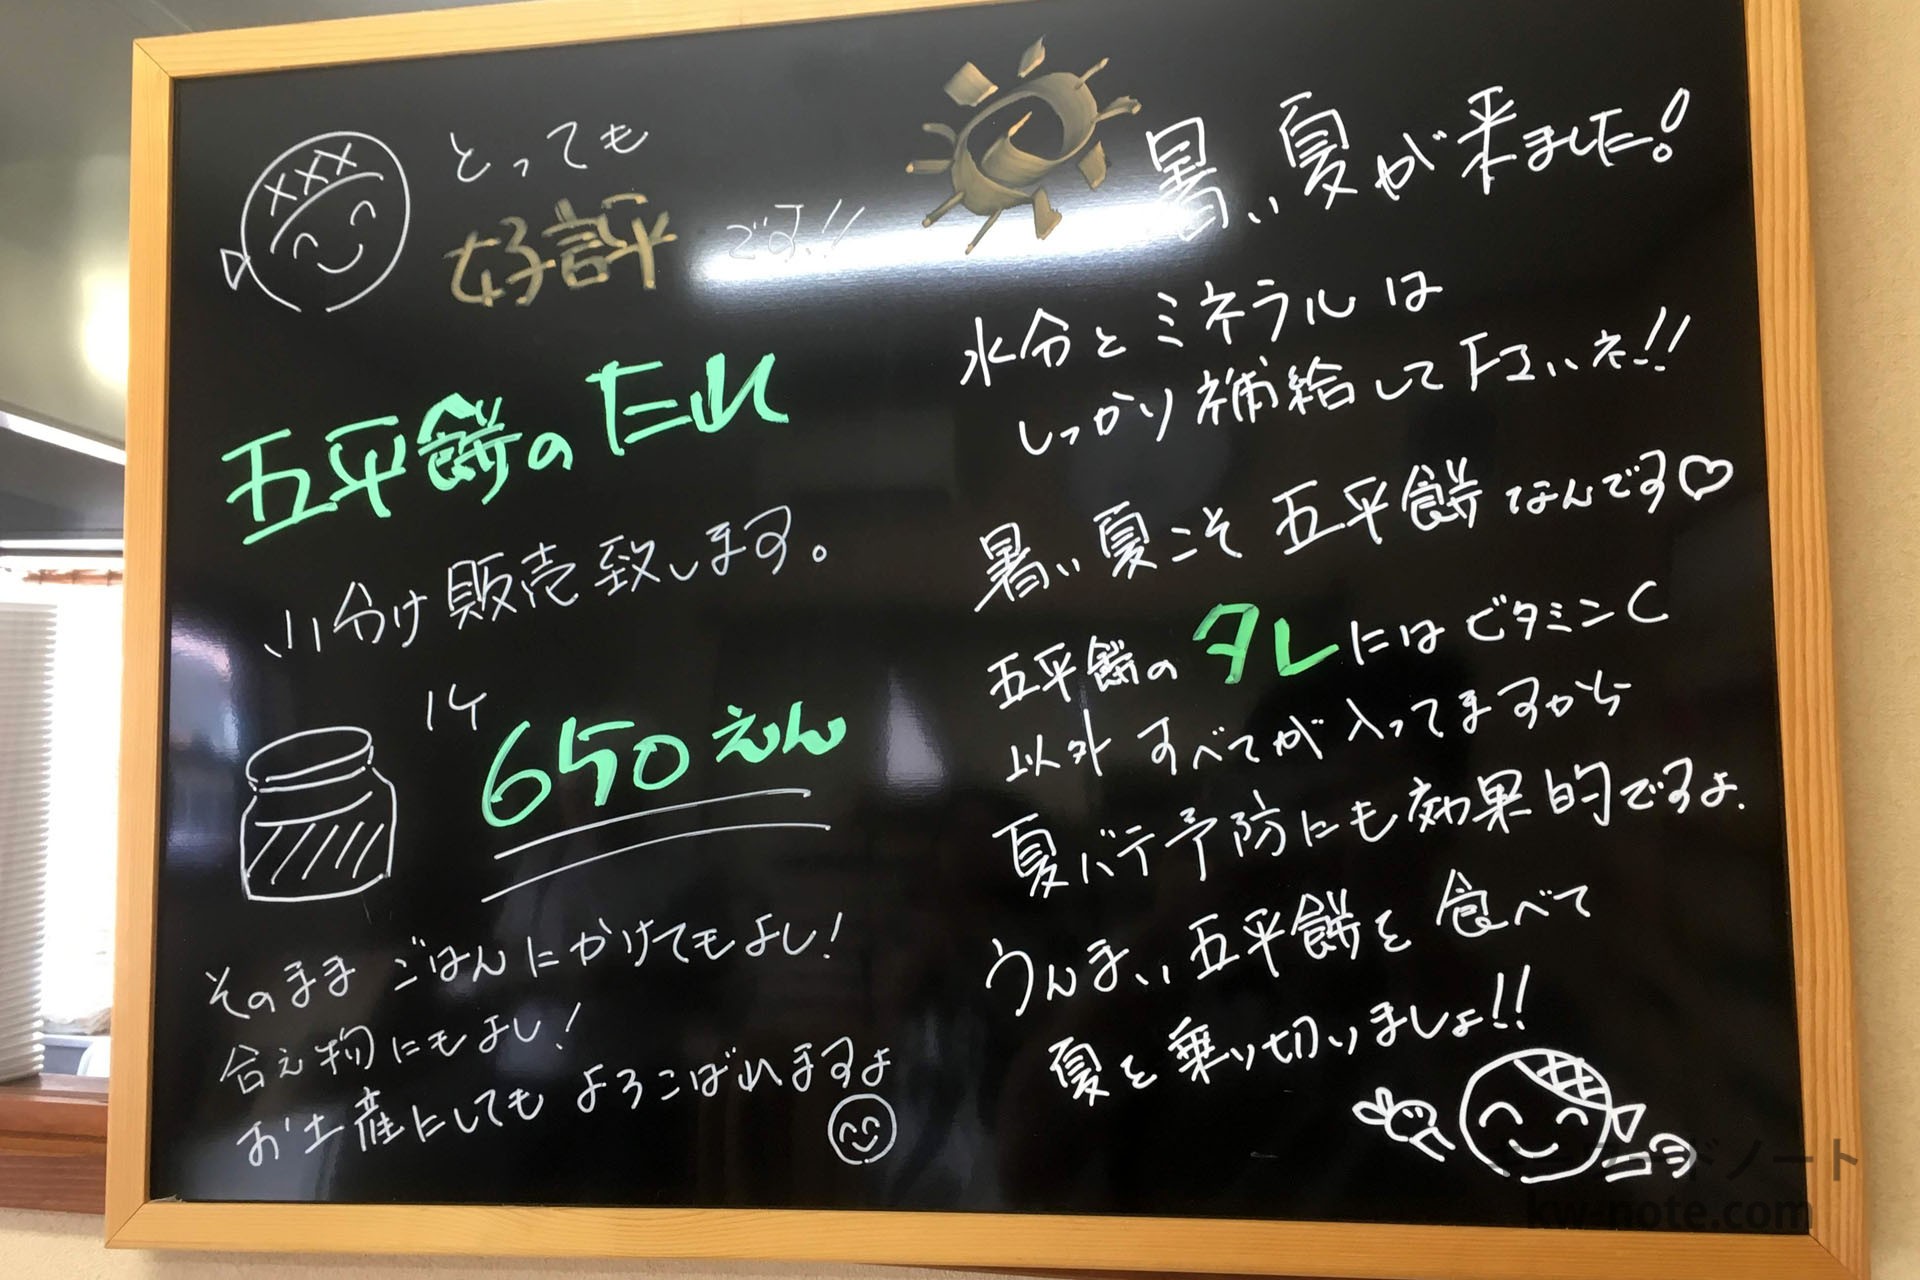 とっても
好評です!!
五平餅のたれ
小分け販売致します。
1ケ
650えん
そのままごはんにかけてもよし!
合え物にもよし!
お土産にしてもよろこばれますよ
暑い夏が来ました!
水分とミネラルは
しっかり補給して下さいネ!!
暑い夏こそ五平餅なんです♡
五平餅のタレにはビタミンC
以外すべてが入ってますから
夏バテ予防にも効果的ですよ.
うんまい五平餅を食べて
夏を乗り切りましょ!!
ードノート
kw-note.com